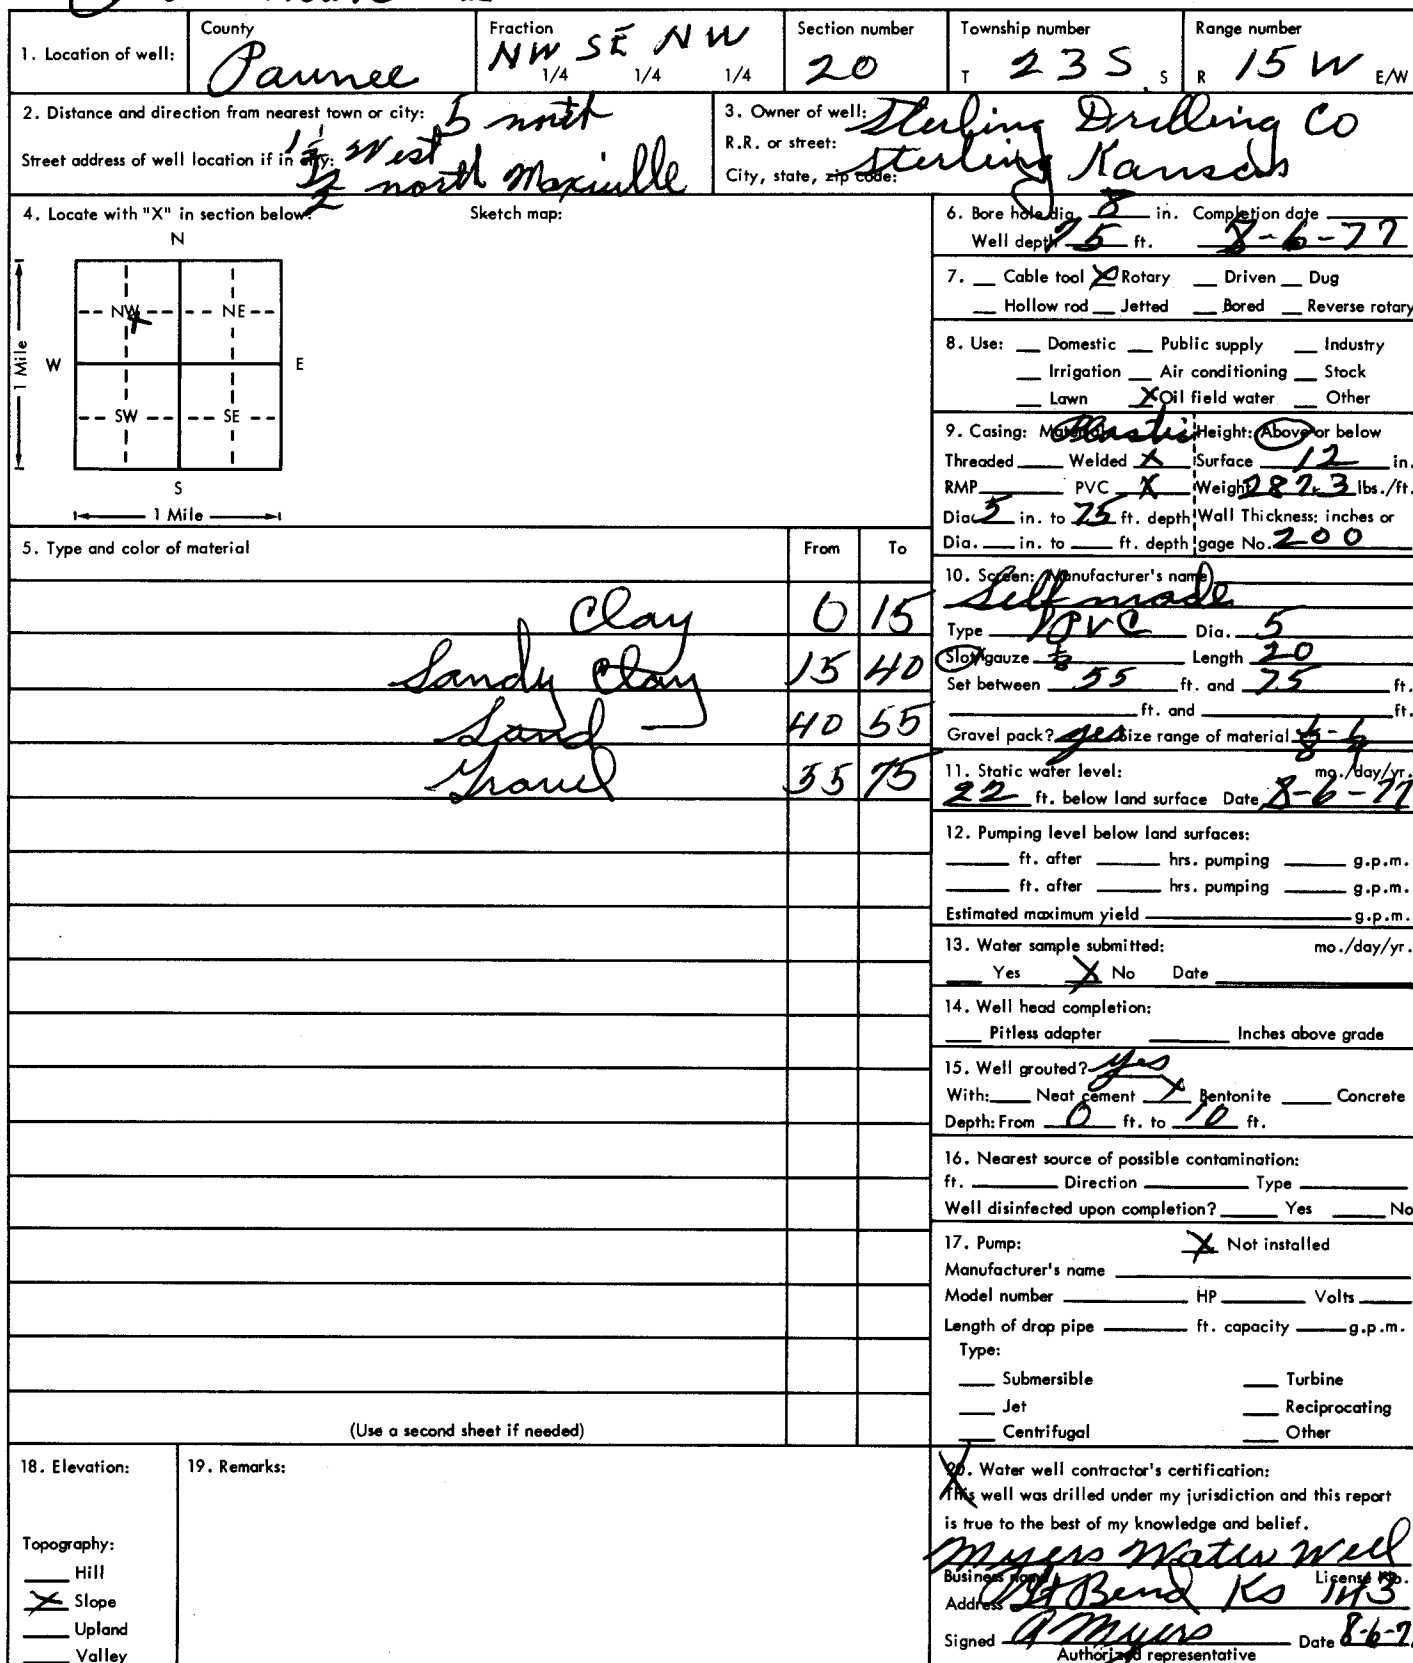 1. Location of well: County Pawnee Fraction NW 1/4 SE 1/4 NW 1/4 Section number 20 Township number T 23S S Range number R 15W E/W
2. Distance and direction from nearest town or city: 5 north
1 1/2 West
Street address of well location if in city:
1/2 north Maxville
3. Owner of well: Sterling Drilling Co
R.R. or street:
City, state, zip code: Sterling Kansas
4. Locate with "X" in section below:
Sketch map:
N
NW X NE
W E
1 Mile
SW SE
S
1 Mile
5. Type and color of material From To
Clay 0 15
Sandy Clay 15 40
Sand 40 55
Gravel 55 75
(Use a second sheet if needed)
6. Bore hole dia 8 in. Completion date
Well depth 75 ft. 8-6-77
7. __ Cable tool X Rotary __ Driven __ Dug
__ Hollow rod __ Jetted __ Bored __ Reverse rotary
8. Use: __ Domestic __ Public supply __ Industry
__ Irrigation __ Air conditioning __ Stock
__ Lawn X Oil field water __ Other
9. Casing: Material Plastic Height: Above or below
Threaded __ Welded X Surface 12 in.
RMP __ PVC X Weight 287.3 lbs./ft.
Dia. 5 in. to 75 ft. depth Wall Thickness: inches or
Dia. __ in. to __ ft. depth gage No. 200
10. Screen: Manufacturer's name
Self made
Type PVC Dia. 5
Slot/gauze 1/8 Length 20
Set between 55 ft. and 75 ft.
__ ft. and __ ft.
Gravel pack? yes Size range of material 1/8-1/4
11. Static water level: mo./day/yr.
22 ft. below land surface Date 8-6-77
12. Pumping level below land surfaces:
__ ft. after __ hrs. pumping __ g.p.m.
__ ft. after __ hrs. pumping __ g.p.m.
Estimated maximum yield __ g.p.m.
13. Water sample submitted: mo./day/yr.
__ Yes X No Date __
14. Well head completion:
__ Pitless adapter __ Inches above grade
15. Well grouted? yes
With: __ Neat cement X Bentonite __ Concrete
Depth: From 0 ft. to 10 ft.
16. Nearest source of possible contamination:
ft. __ Direction __ Type __
Well disinfected upon completion? __ Yes __ No
17. Pump: X Not installed
Manufacturer's name __
Model number __ HP __ Volts __
Length of drop pipe __ ft. capacity __ g.p.m.
Type:
__ Submersible __ Turbine
__ Jet __ Reciprocating
__ Centrifugal __ Other
18. Elevation:
Topography:
__ Hill
X Slope
__ Upland
__ Valley
19. Remarks:
20. Water well contractor's certification:
This well was drilled under my jurisdiction and this report
is true to the best of my knowledge and belief.
Myers Water Well
Business name License No.
Address Gt Bend Ks 143
Signed A Myers Date 8-6-7
Authorized representative